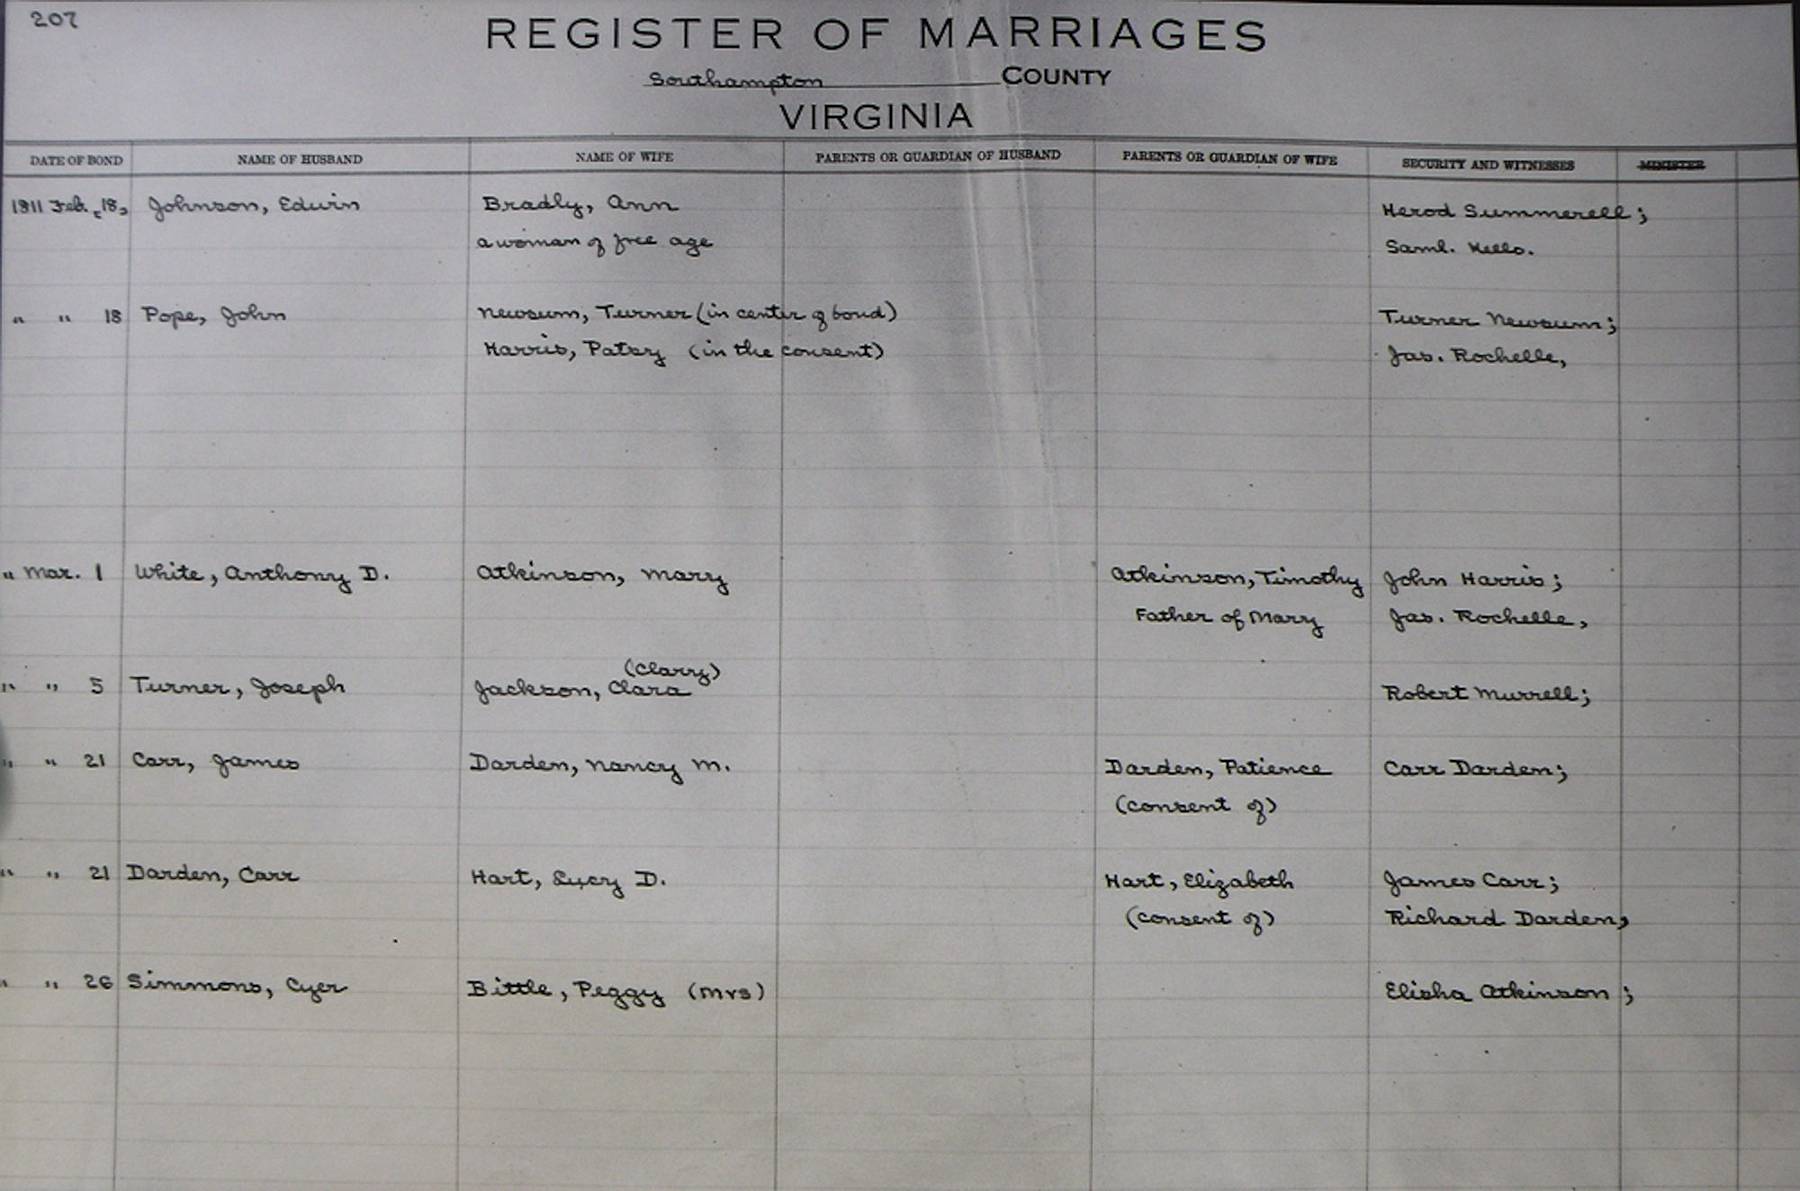 207
REGISTER OF MARRIAGES
Southampton COUNTY
VIRGINIA
DATE OF BOND NAME OF HUSBAND NAME OF WIFE PARENTS OR GUARDIAN OF HUSBAND PARENTS OR GUARDIAN OF WIFE SECURITY AND WITNESSES MINISTER
1811 Feb. 18, Johnson, Edwin Bradly, Ann Herod Summerell;
a woman of free age Saml. Kello.
" " 18 Pope, John Newsum, Turner (in center of bond) Turner Newsum;
Harris, Patsy (in the consent) Jas. Rochelle,
" Mar. 1 White, Anthony D. Atkinson, Mary Atkinson, Timothy John Harris;
Father of Mary Jas. Rochelle,
(Clarry)
" " 5 Turner, Joseph Jackson, Clara Robert Murrell;
" " 21 Carr, James Darden, Nancy M. Darden, Patience Carr Darden;
(consent of)
" " 21 Darden, Carr Hart, Lucy D. Hart, Elizabeth James Carr;
(consent of) Richard Darden,
" " 26 Simmons, Cyer Bittle, Peggy (Mrs) Elisha Atkinson;